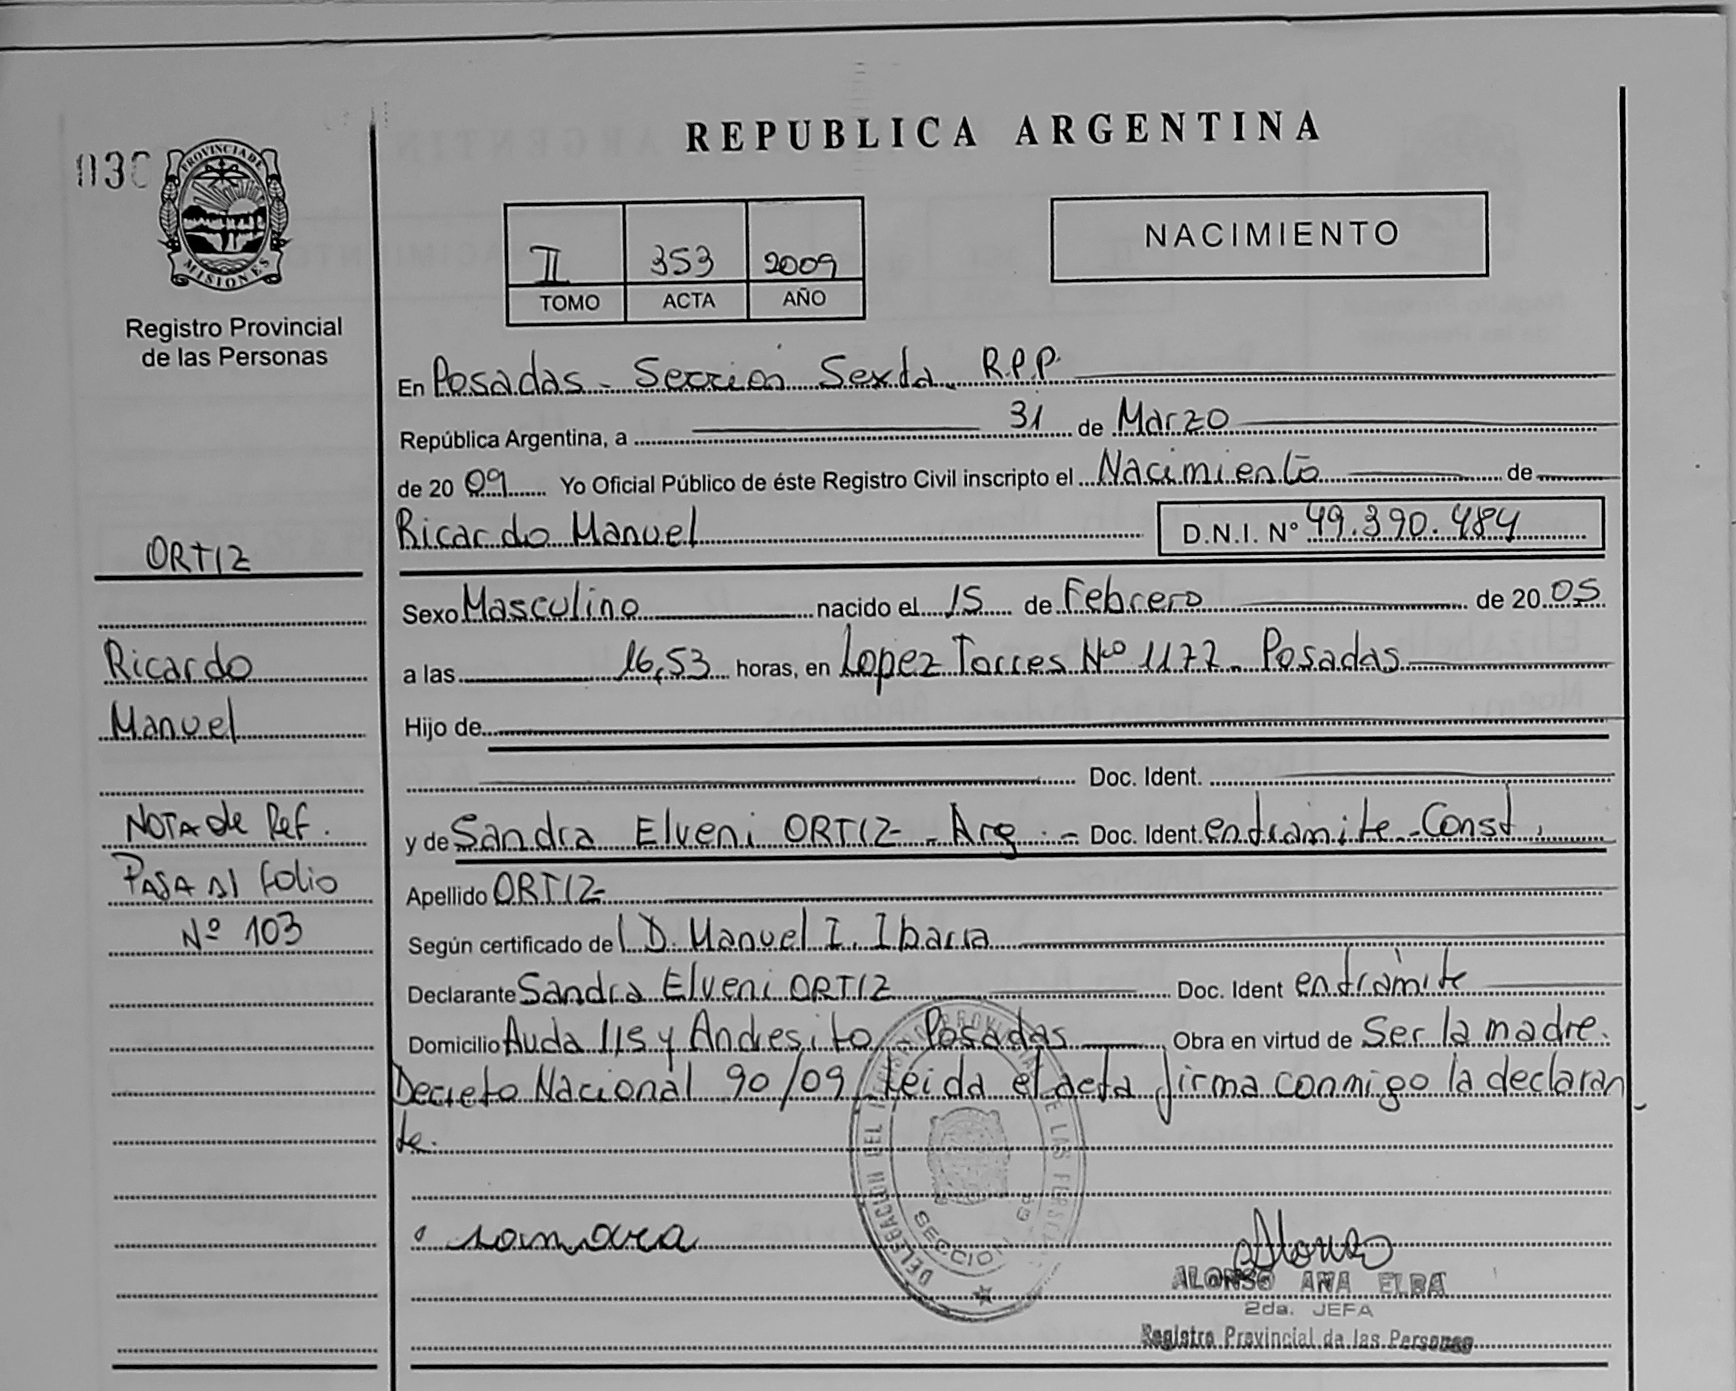 REPUBLICA ARGENTINA
PROVINCIA DE
MISIONES
Registro Provincial
de las Personas
II 353 2009
TOMO ACTA AÑO
NACIMIENTO
En Posadas - Sección Sexta R.P.P.
República Argentina, a 31 de Marzo
de 2009 Yo Oficial Público de éste Registro Civil inscripto el Nacimiento de
Ricardo Manuel D.N.I. Nº 49.390.484
ORTIZ
Sexo Masculino nacido el 15 de Febrero de 2005
Ricardo
a las 16,53 horas, en Lopez Torres Nº 1177 - Posadas
Manuel
Hijo de
Doc. Ident.
NOTA de Ref.
y de Sandra Elveni ORTIZ - Arg. - Doc. Ident entramite - Const.
PASA Al folio
Apellido ORTIZ-
Nº 103
Según certificado de D. Manuel I. Ibarra
Declarante Sandra Elveni ORTIZ Doc. Ident entramite
Domicilio Avda 115 y Andresito Posadas Obra en virtud de Ser la madre.
Decreto Nacional 90/09 Leida el acta firma conmigo la declaran
te.
DELEGACION DEL REGISTRO PROVINCIAL DE LAS PERSONAS
SECCION
Alonso
ALONSO ANA ELBA
2da. JEFA
Registro Provincial de las Personas